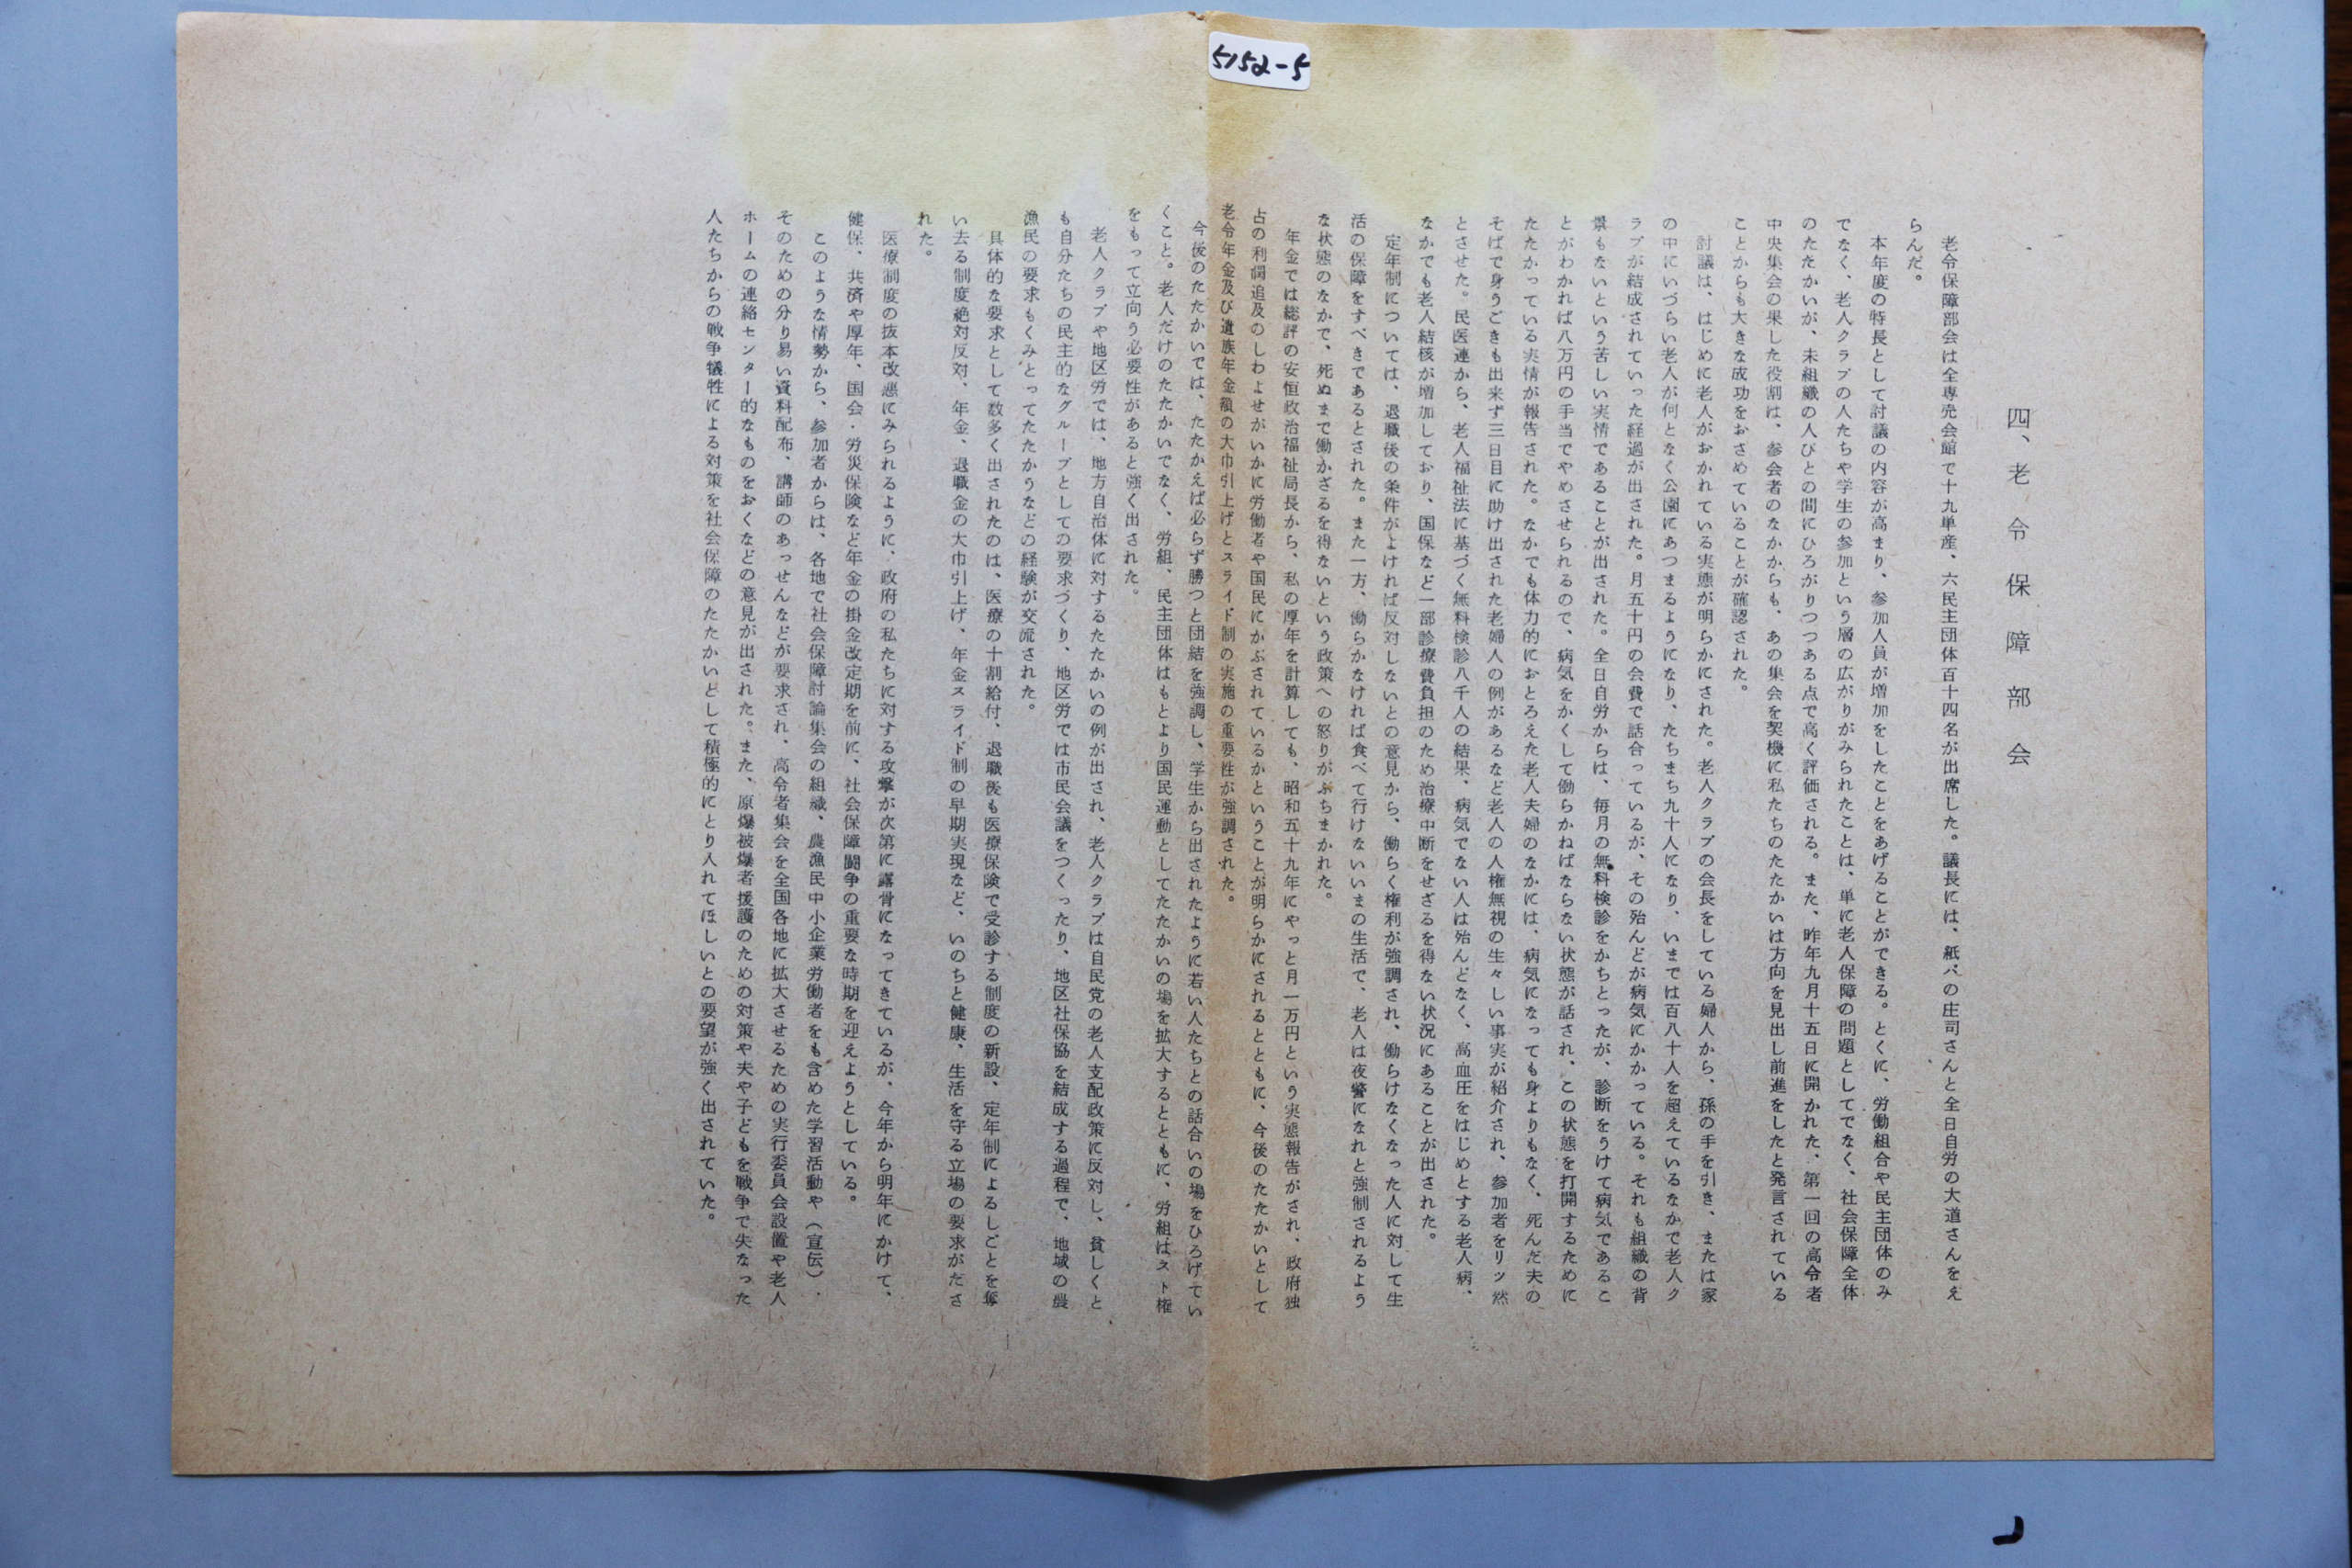 5152-5
四、老令保障部会
老令保障部会は全専売会館で十九単産、六民主団体百十四名が出席した。議長には、紙パの庄司さんと全日自労の大道さんをえ
らんだ。
本年度の特長として討議の内容が高まり、参加人員が増加をしたことをあげることができる。とくに、労働組合や民主団体のみ
でなく、老人クラブの人たちや学生の参加という層の広がりがみられたことは、単に老人保障の問題としてでなく、社会保障全体
のたたかいが、未組織の人びとの間にひろがりつつある点で高く評価される。また、昨年九月十五日に開かれた、第一回の高令者
中央集会の果した役割は、参会者のなかからも、あの集会を契機に私たちのたたかいは方向を見出し前進をしたと発言されている
ことからも大きな成功をおさめていることが確認された。
討議は、はじめに老人がおかれている実態が明らかにされた。老人クラブの会長をしている婦人から、孫の手を引き、または家
の中にいづらい老人が何となく公園にあつまるようになり、たちまち九十人になり、いまでは百八十人を超えているなかで老人ク
ラブが結成されていった経過が出された。月五十円の会費で話合っているが、その殆んどが病気にかかっている。それも組織の背
景もないという苦しい実情であることが出された。全日自労からは、毎月の無料検診をかちとったが、診断をうけて病気であるこ
とがわかれば八万円の手当でやめさせられるので、病気をかくして働らかねばならない状態が話され、この状態を打開するために
たたかっている実情が報告された。なかでも体力的におとろえた老人夫婦のなかには、病気になっても身よりもなく、死んだ夫の
そばで身うごきも出来ず三日目に助け出された老婦人の例があるなど老人の人権無視の生々しい事実が紹介され、参加者をリツ然
とさせた。民医連から、老人福祉法に基づく無料検診八千人の結果、病気でない人は殆んどなく、高血圧をはじめとする老人病、
なかでも老人結核が増加しており、国保など一部診療費負担のため治療中断をせざるを得ない状況にあることが出された。
定年制については、退職後の条件がよければ反対しないとの意見から、働らく権利が強調され、働らけなくなった人に対して生
活の保障をすべきであるとされた。また一方、働らかなければ食べて行けないいまの生活で、老人は夜警になれと強制されるよう
な状態のなかで、死ぬまで働かざるを得ないという政策への怒りがぶちまかれた。
年金では総評の安恒政治福祉局長から、私の厚年を計算しても、昭和五十九年にやっと月一万円という実態報告がされ、政府独
占の利潤追及のしわよせがいかに労働者や国民にかぶされているかということが明らかにされるとともに、今後のたたかいとして
老令年金及び遺族年金額の大巾引上げとスライド制の実施の重要性が強調された。
今後のたたかいでは、たたかえば必らず勝つと団結を強調し、学生から出されたように若い人たちとの話合いの場をひろげてい
くこと。老人だけのたたかいでなく、労組、民主団体はもとより国民運動としてたたかいの場を拡大するとともに、労組はスト権
をもって立向う必要性があると強く出された。
老人クラブや地区労では、地方自治体に対するたたかいの例が出され、老人クラブは自民党の老人支配政策に反対し、貧しくと
も自分たちの民主的なグループとしての要求づくり、地区労では市民会議をつくったり、地区社保協を結成する過程で、地域の農
漁民の要求もくみとってたたかうなどの経験が交流された。
具体的な要求として数多く出されたのは、医療の十割給付、退職後も医療保険で受診する制度の新設、定年制によるしごとを奪
い去る制度絶対反対、年金、退職金の大巾引上げ、年金スライド制の早期実現など、いのちと健康、生活を守る立場の要求がださ
れた。
医療制度の抜本改悪にみられるように、政府の私たちに対する攻撃が次第に露骨になってきているが、今年から明年にかけて、
健保、共済や厚年、国会・労災保険など年金の掛金改定期を前に、社会保障闘争の重要な時期を迎えようとしている。
このような情勢から、参加者からは、各地で社会保障討論集会の組織、農漁民中小企業労働者をも含めた学習活動や（宣伝）、
そのための分り易い資料配布、講師のあっせんなどが要求され、高令者集会を全国各地に拡大させるための実行委員会設置や老人
ホームの連絡センター的なものをおくなどの意見が出された。また、原爆被爆者援護のための対策や夫や子どもを戦争で失なった
人たちからの戦争犠牲による対策を社会保障のたたかいとして積極的にとり入れてほしいとの要望が強く出されていた。